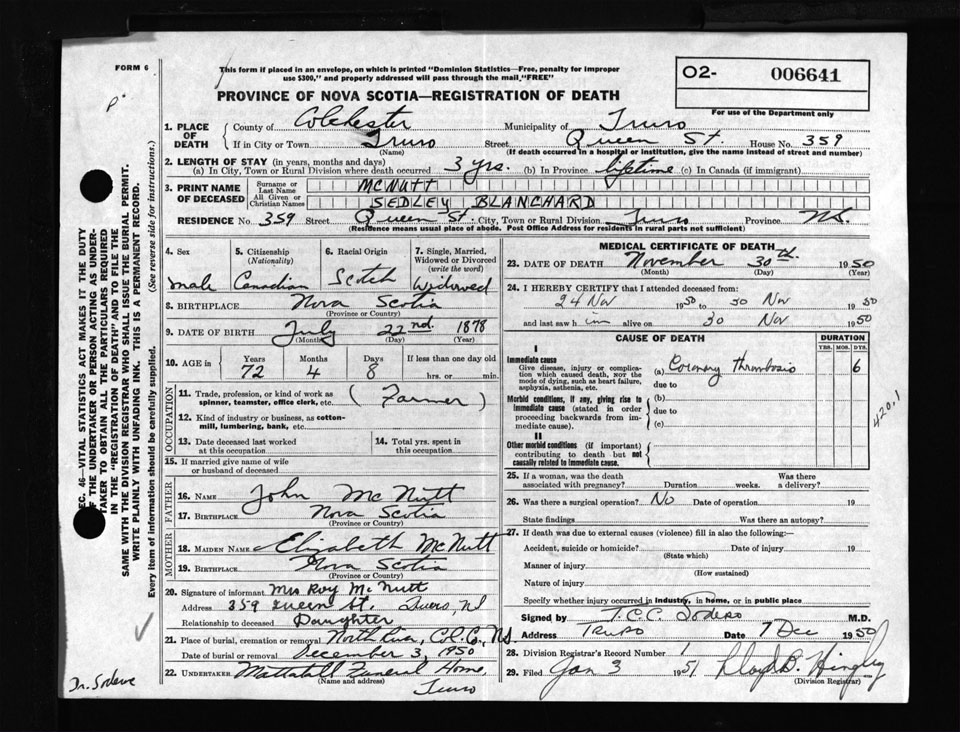 FORM 6
This form if placed in an envelope, on which is printed "Dominion Statistics—Free, penalty for improper
use $300," and properly addressed will pass through the mail "FREE"
PROVINCE OF NOVA SCOTIA—REGISTRATION OF DEATH
O2- 006641
For use of the Department only
P
1. PLACE OF DEATH County of Colchester Municipality of Truro
If in City or Town Truro Street Queen St. House No. 359
(Name) (If death occurred in a hospital or institution, give the name instead of street and number)
2. LENGTH OF STAY (in years, months and days)
(a) In City, Town or Rural Division where death occurred 3 yrs. (b) In Province lifetime (c) In Canada (if immigrant)
3. PRINT NAME OF DECEASED Surname or Last Name MCNUTT
All Given or Christian Names SEDLEY BLANCHARD
RESIDENCE No. 359 Street Queen St. City, Town or Rural Division Truro Province N.S.
(Residence means usual place of abode. Post Office Address for residents in rural parts not sufficient)
4. Sex male
5. Citizenship (Nationality) Canadian
6. Racial Origin Scotch
7. Single, Married, Widowed or Divorced (write the word) Widowed
8. BIRTHPLACE Nova Scotia
(Province or Country)
9. DATE OF BIRTH July 22nd. 1878
(Month) (Day) (Year)
10. AGE in Years 72 Months 4 Days 8 If less than one day old
hrs. or min.
OCCUPATION
11. Trade, profession, or kind of work as
spinner, teamster, office clerk, etc. (Farmer)
12. Kind of industry or business, as cotton-
mill, lumbering, bank, etc.
13. Date deceased last worked
at this occupation
14. Total yrs. spent in
this occupation
15. If married give name of wife
or husband of deceased
FATHER
16. NAME John McNutt
17. BIRTHPLACE Nova Scotia
(Province or Country)
MOTHER
18. MAIDEN NAME Elizabeth McNutt
19. BIRTHPLACE Nova Scotia
(Province or Country)
20. Signature of informant Mrs Roy McNutt
Address 359 Queen St. Truro, NS
Relationship to deceased Daughter
21. Place of burial, cremation or removal North River, Col. Co., N.S.
Date of burial or removal December 3, 1950
22. UNDERTAKER Mattatall Funeral Home,
(Name and address) Truro
MEDICAL CERTIFICATE OF DEATH
23. DATE OF DEATH November 30th. 1950
(Month) (Day) (Year)
24. I HEREBY CERTIFY that I attended deceased from:
24 Nov 1950 to 30 Nov 1950
and last saw him alive on 30 Nov 1950
CAUSE OF DEATH
DURATION
YRS. MOS. DYS.
I
Immediate cause
Give disease, injury or complica-
tion which caused death, not the
mode of dying, such as heart failure,
asphyxia, asthenia, etc.
(a) Coronary thrombosis 6
due to
Morbid conditions, if any, giving rise to
immediate cause (stated in order
proceeding backwards from im-
mediate cause).
(b)
due to
(c)
420.1
II
Other morbid conditions (if important)
contributing to death but not
causally related to immediate cause.
25. If a woman, was the death
associated with pregnancy? Duration weeks. Was there
a delivery?
26. Was there a surgical operation? No Date of operation 19
State findings Was there an autopsy?
27. If death was due to external causes (violence) fill in also the following:—
Accident, suicide or homicide? Date of injury 19
(State which)
Manner of injury
(How sustained)
Nature of injury
Specify whether injury occurred in industry, in home, or in public place
Signed by T.C.C. Sodero M.D.
Address TRURO Date 7 Dec 1950
28. Division Registrar's Record Number 1
29. Filed Jan 3 1951 Lloyd B. Hingley
(Division Registrar)
SEC. 46—VITAL STATISTICS ACT MAKES IT THE DUTY
OF THE UNDERTAKER OR PERSON ACTING AS UNDER-
TAKER TO OBTAIN ALL THE PARTICULARS REQUIRED
IN THE "REGISTRATION OF DEATH" AND TO FILE THE
SAME WITH THE DIVISION REGISTRAR WHO SHALL ISSUE THE BURIAL PERMIT.
WRITE PLAINLY WITH UNFADING INK. THIS IS A PERMANENT RECORD.
Every item of information should be carefully supplied. (See reverse side for instructions.)
Dr. Sodero